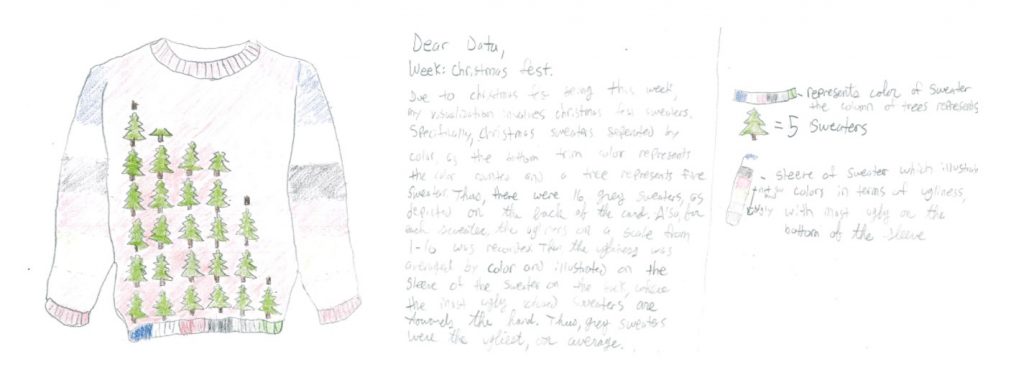 Dear Data,
Week: Christmas fest.
Due to christmas fest being this week,
my visualization involves christmas fest sweaters.
Specifically, Christmas sweaters seperated by
color, as the bottom trim color represents
the color counted and a tree represents five
sweaters. Thus, there were 16 grey sweaters, as
depicted on the back of the card. Also, for
each sweater, the ugliness on a scale from
1-10 was recorded. Then the ugliness was
averaged by color and illustrated on the
sleeve of the sweater on the back, where
the most ugly colored sweaters are
towards the hand. Thus, grey sweaters
were the ugliest, on average.
- represents color of sweater
the column of trees represents
= 5 sweaters
- sleeve of sweater which illustrate
colors in terms of ugliness,
ugly with most ugly on the
bottom of the sleeve